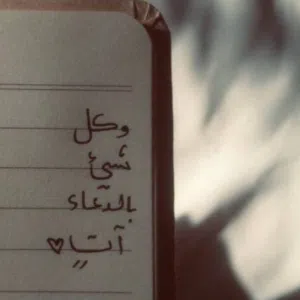 وكل
شيئ
بالدعاء
آتٍ ♡